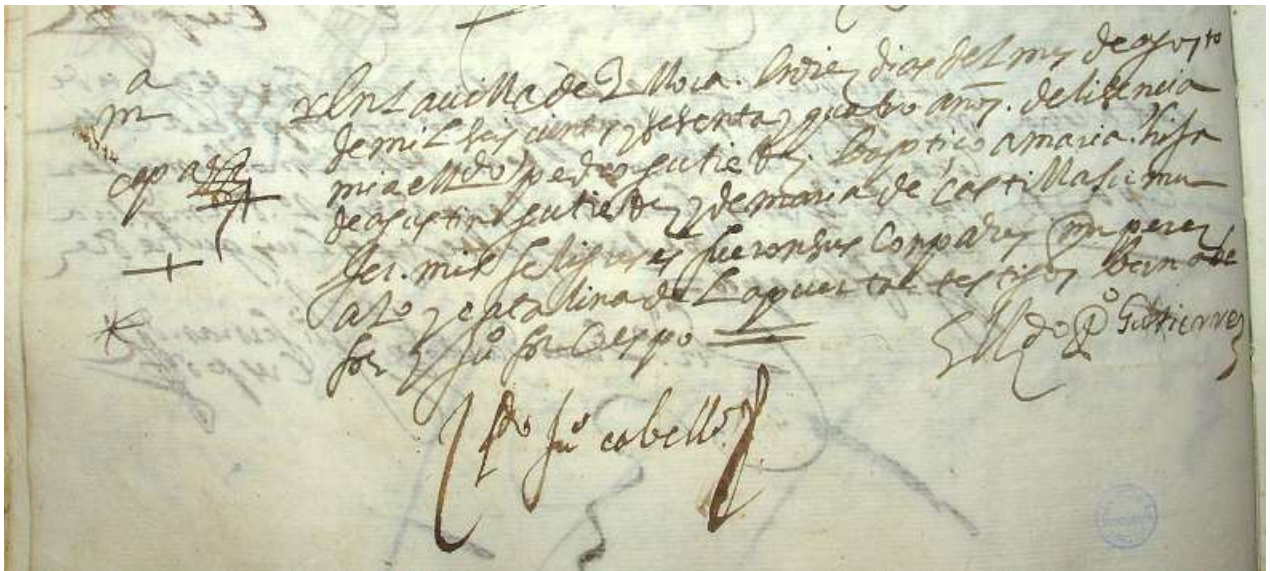 a
m
En La villa de Illora. En diez dias del mes de agosto
de mil seis cientos y sesenta y quatro años. de lisencia
mia el Ldo pedro gutierrez. baptiço a maria. hija
de agustin gutierrez y de maria de castilla su mu
Jer. mis feligreses fueron sus Conpadres perez
y catalina de La puerta testigos bernabe
for y Juº for Crespo
Ldo Pº Gutierrez
Ldo Juº cabello